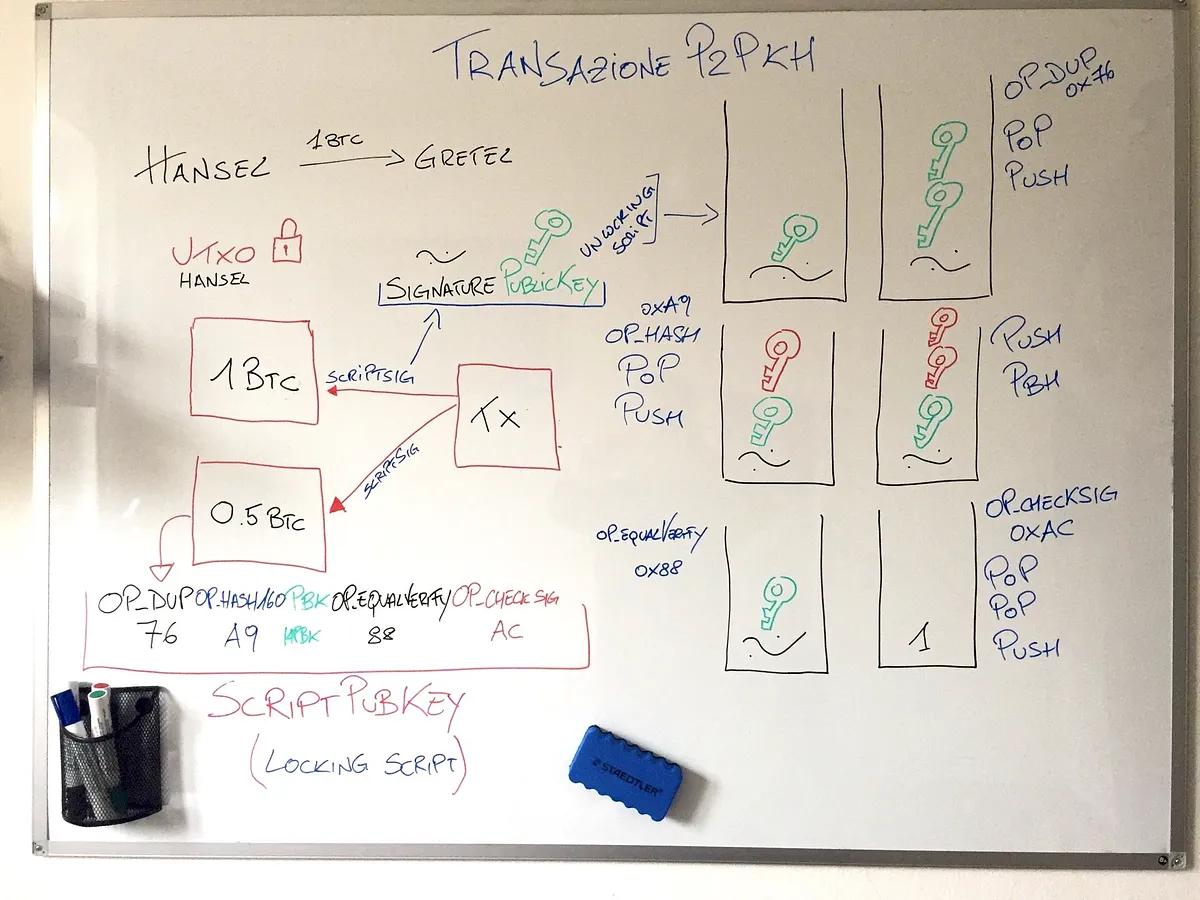 TRANSAZIONE P2PKH
HANSEL 1BTC GRETEL
UTXO
HANSEL
SIGNATURE PUBLICKEY
UNLOCKING
SCRIPT
1 BTC
SCRIPTSIG
TX
SCRIPTSIG
0.5 BTC
OP_DUP OP_HASH160 PBK OP_EQUALVERIFY OP_CHECKSIG
76 A9 HPBK 88 AC
SCRIPTPUBKEY
(LOCKING SCRIPT)
OP_DUP
0X76
POP
PUSH
0XA9
OP_HASH
POP
PUSH
PUSH
PBH
OP_EQUALVERIFY
0X88
1
OP_CHECKSIG
0XAC
POP
POP
PUSH
STAEDTLER